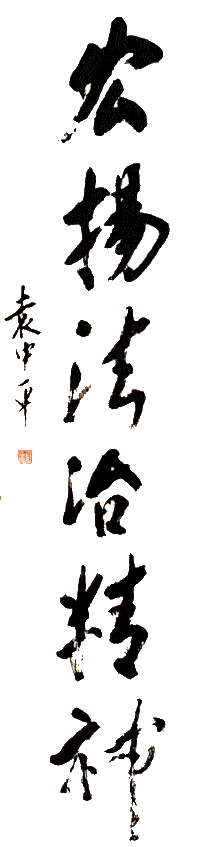 宏揚法治精神
袁中平